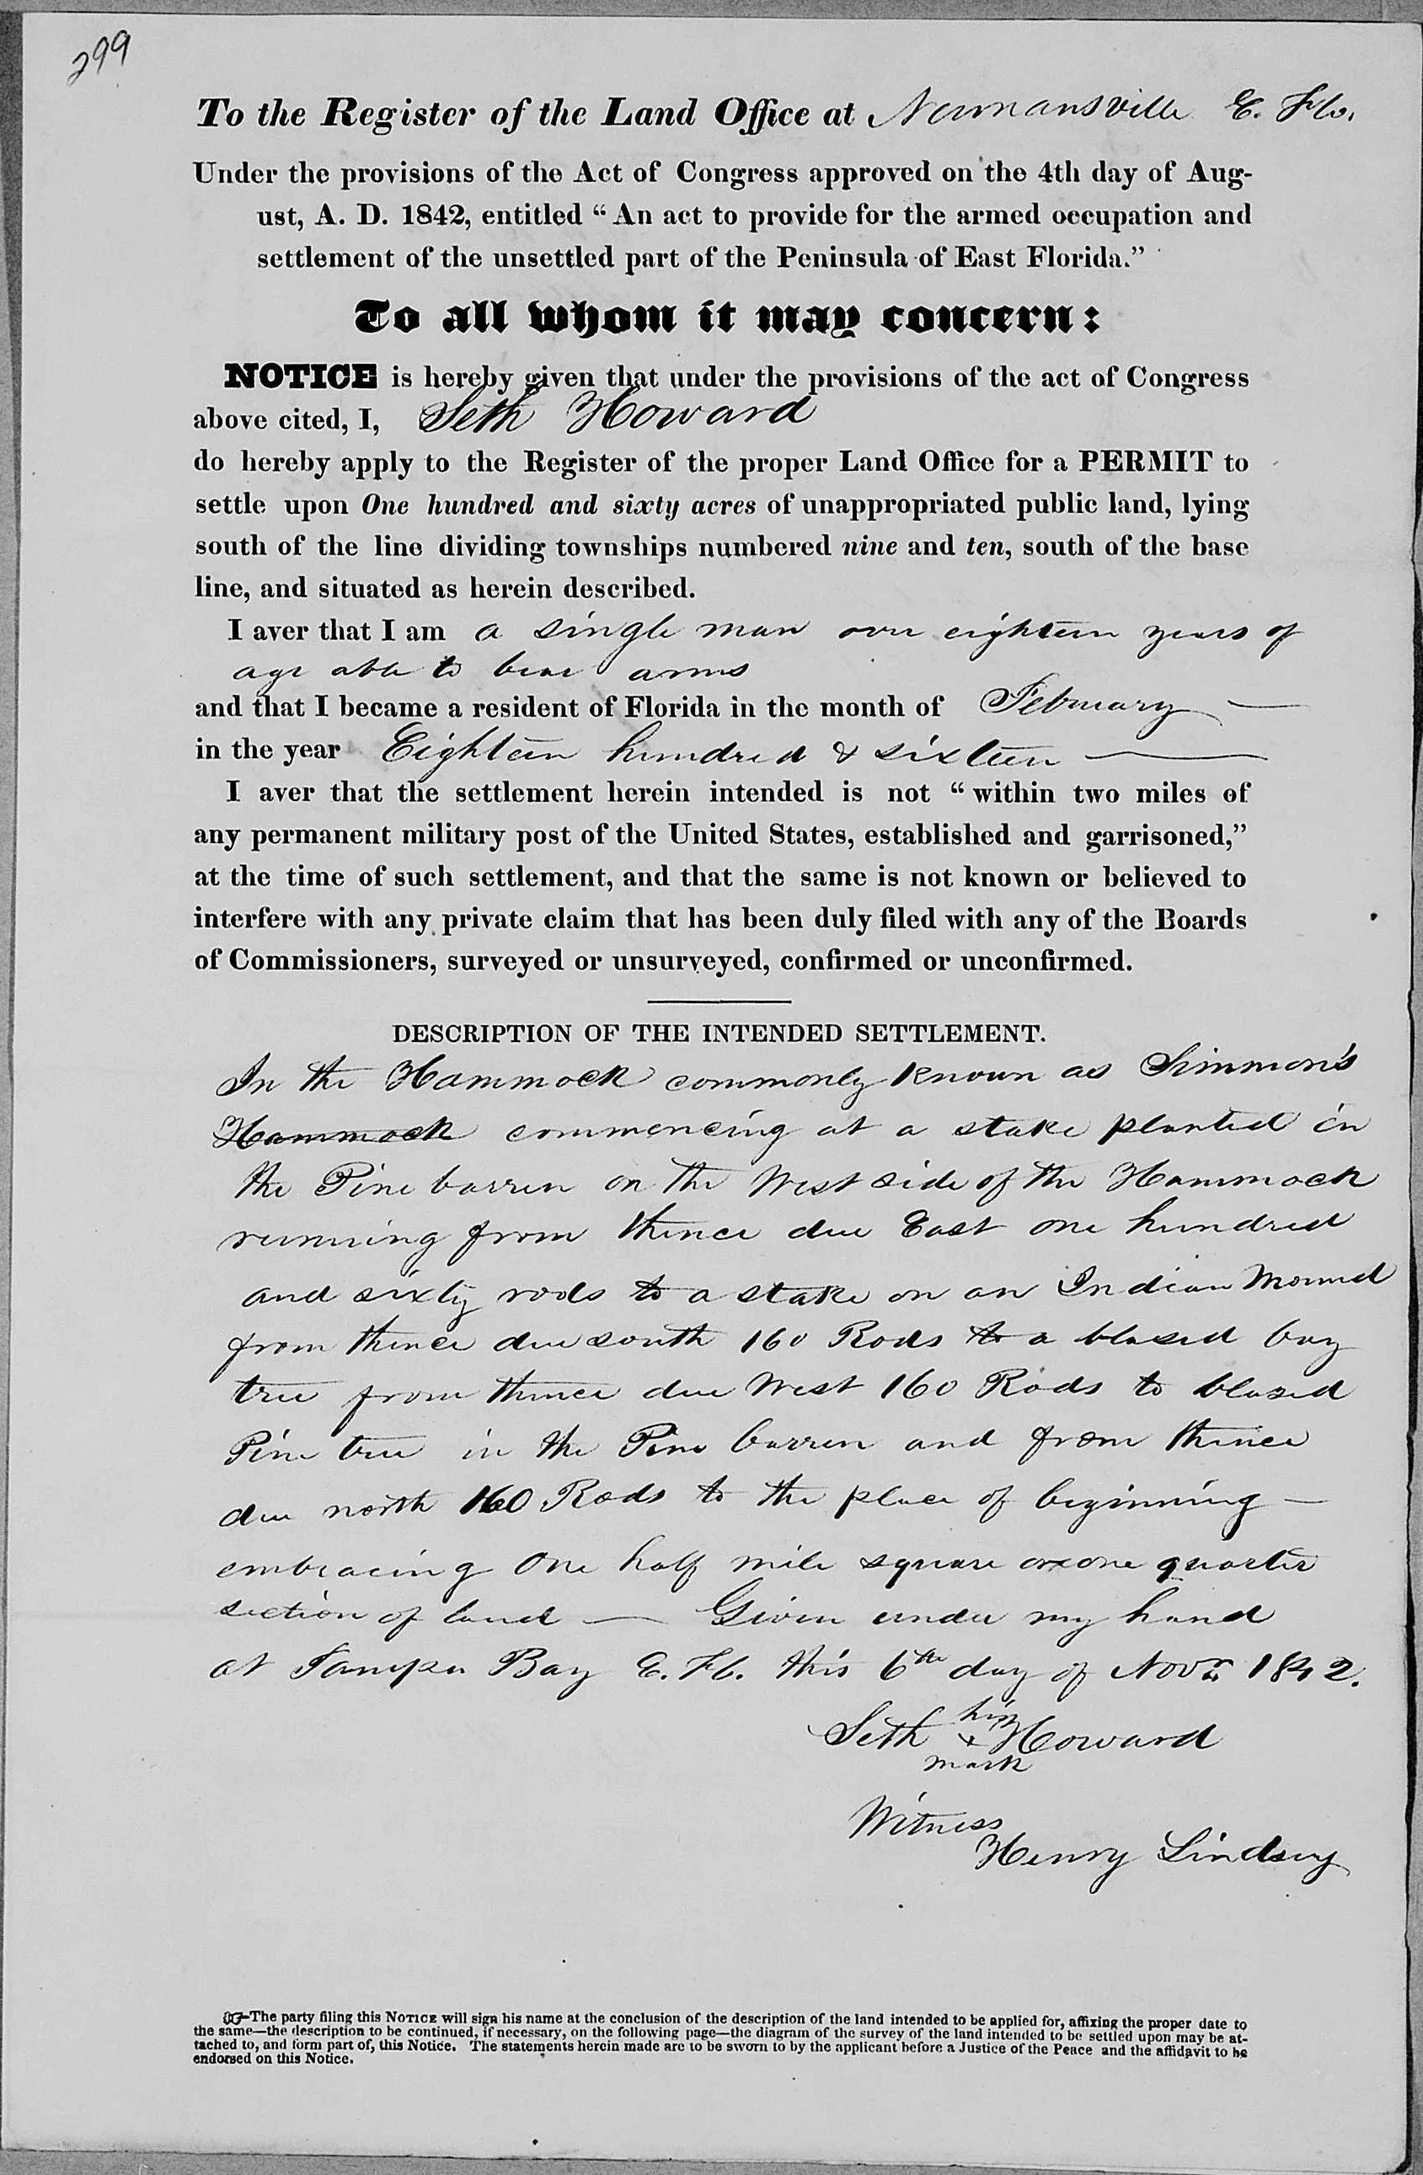 299
To the Register of the Land Office at Newnansville E. Flo.
Under the provisions of the Act of Congress approved on the 4th day of Aug-
ust, A. D. 1842, entitled “An act to provide for the armed occupation and
settlement of the unsettled part of the Peninsula of East Florida.”
To all whom it may concern:
NOTICE is hereby given that under the provisions of the act of Congress
above cited, I, Seth Howard
do hereby apply to the Register of the proper Land Office for a PERMIT to
settle upon One hundred and sixty acres of unappropriated public land, lying
south of the line dividing townships numbered nine and ten, south of the base
line, and situated as herein described.
I aver that I am a single man over eighteen years of
age able to bear arms
and that I became a resident of Florida in the month of February —
in the year Eighteen hundred & sixteen —
I aver that the settlement herein intended is not “within two miles of
any permanent military post of the United States, established and garrisoned,”
at the time of such settlement, and that the same is not known or believed to
interfere with any private claim that has been duly filed with any of the Boards
of Commissioners, surveyed or unsurveyed, confirmed or unconfirmed.
DESCRIPTION OF THE INTENDED SETTLEMENT.
In the Hammock commonly known as Simmon's
Hammock commencing at a stake planted in
the Pine barren on the West side of the Hammock
running from thence due East one hundred
and sixty rods to a stake on an Indian Mound
from thence due south 160 Rods to a blased bay
tree from thence due West 160 Rods to blased
Pine tree in the Pine barren and from thence
due north 160 Rods to the place of beginning —
embracing One half mile square or one quarter
section of land — Given under my hand
at Tampa Bay E. Fl. this 6th day of Novr. 1842.
his
Seth x Howard
mark
Witness
Henry Lindsey
☞The party filing this NOTICE will sign his name at the conclusion of the description of the land intended to be applied for, affixing the proper date to
the same—the description to be continued, if necessary, on the following page—the diagram of the survey of the land intended to be settled upon may be at-
tached to, and form part of, this Notice. The statements herein made are to be sworn to by the applicant before a Justice of the Peace and the affidavit to be
endorsed on this Notice.